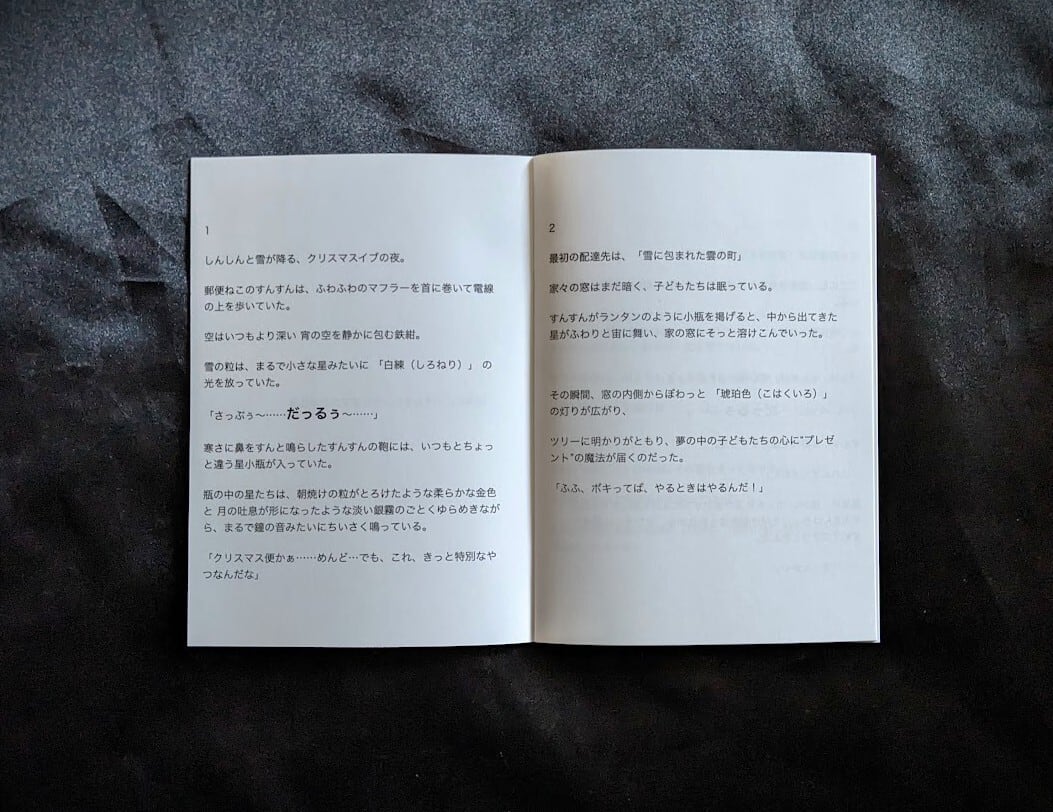 1
しんしんと雪が降る、クリスマスイブの夜。
郵便ねこのすんすんは、ふわふわのマフラーを首に巻いて電線
の上を歩いていた。
空はいつもより深い 宵の空を静かに包む鉄紺。
雪の粒は、まるで小さな星みたいに 「白練（しろねり）」 の
光を放っていた。
「さっぶぅ～……だっるぅ～……」
寒さに鼻をすんと鳴らしたすんすんの鞄には、いつもとちょっ
と違う星小瓶が入っていた。
瓶の中の星たちは、朝焼けの粒がとろけたような柔らかな金色
と 月の吐息が形になったような淡い銀霧のごとくゆらめきなが
ら、まるで鐘の音みたいにちいさく鳴っている。
「クリスマス便かぁ……めんど…でも、これ、きっと特別なや
つなんだな」
2
最初の配達先は、「雪に包まれた雲の町」
家々の窓はまだ暗く、子どもたちは眠っている。
すんすんがランタンのように小瓶を掲げると、中から出てきた
星がふわりと宙に舞い、家の窓にそっと溶けこんでいった。
その瞬間、窓の内側からぽわっと 「琥珀色（こはくいろ）」
の灯りが広がり、
ツリーに明かりがともり、夢の中の子どもたちの心に“プレゼ
ント”の魔法が届くのだった。
「ふふ、ボキってば、やるときはやるんだ！」